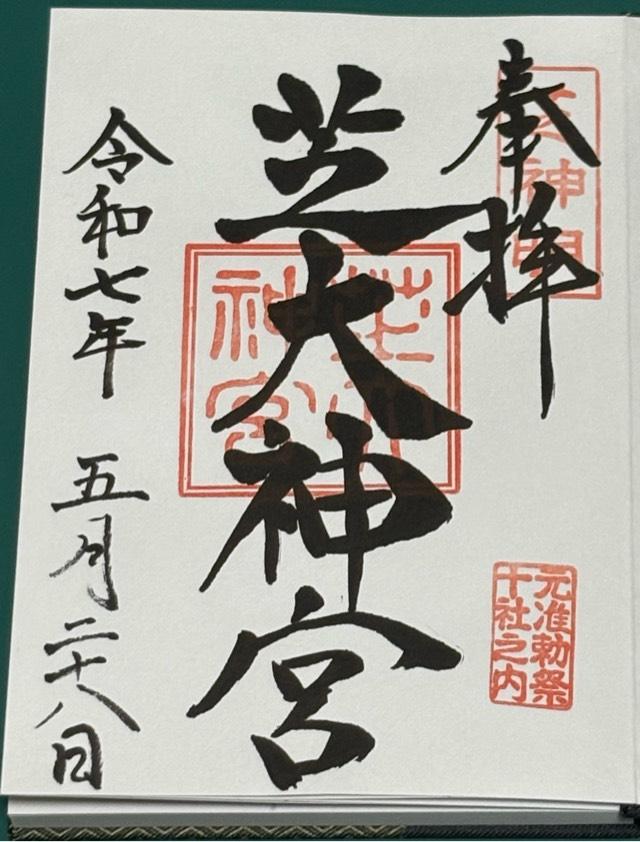 奉拝
芝神明
元准勅祭
十社之内
芝大神宮
芝大
神宮
令和七年 五月二十八日